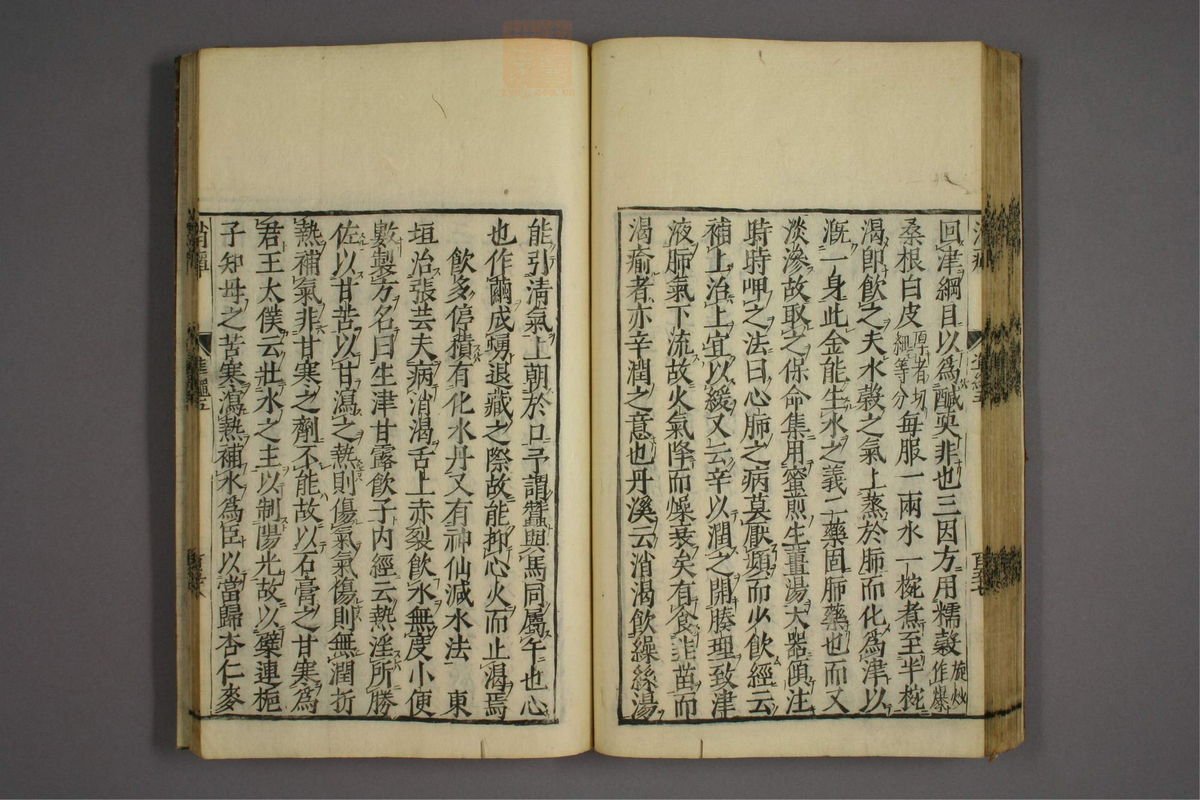 回津綱目以為醎臭非也三因方用糯穀旋炒作爆
桑根白皮厚者切細等分每服一兩水一椀煮至半椀
渴即飲之夫水穀之氣上蒸於肺而化為津以
漑一身此金能生水之義二藥固肺藥也而又
淡滲故取之保命集用蜜煎生薑湯大器傾注
時時呷之法曰心肺之病莫厭頻而少飲經云
補上治上宜以緩又云辛以潤之開腠理致津
液肺氣下流故火氣降而燥衰矣有食韭苗而
渴瘉者亦辛潤之意也丹溪云消渴飲繰絲湯
能引清氣上朝於口予謂蠶與馬同屬午也心
也作繭成蛹退藏之際故能抑心火而止渴焉
飲多停積有化水丹又有神仙減水法 東
垣治張芸夫病消渴舌上赤裂飲水無度小便
數製方名曰生津甘露飲子内經云熱淫所勝
佐以甘苦以甘瀉之熱則傷氣氣傷則無潤折
熱補氣非甘寒之劑不能故以石膏之甘寒為
君王太僕云壯水之主以制陽光故以蘗連梔
子知母之苦寒瀉熱補水為臣以當歸杏仁麥